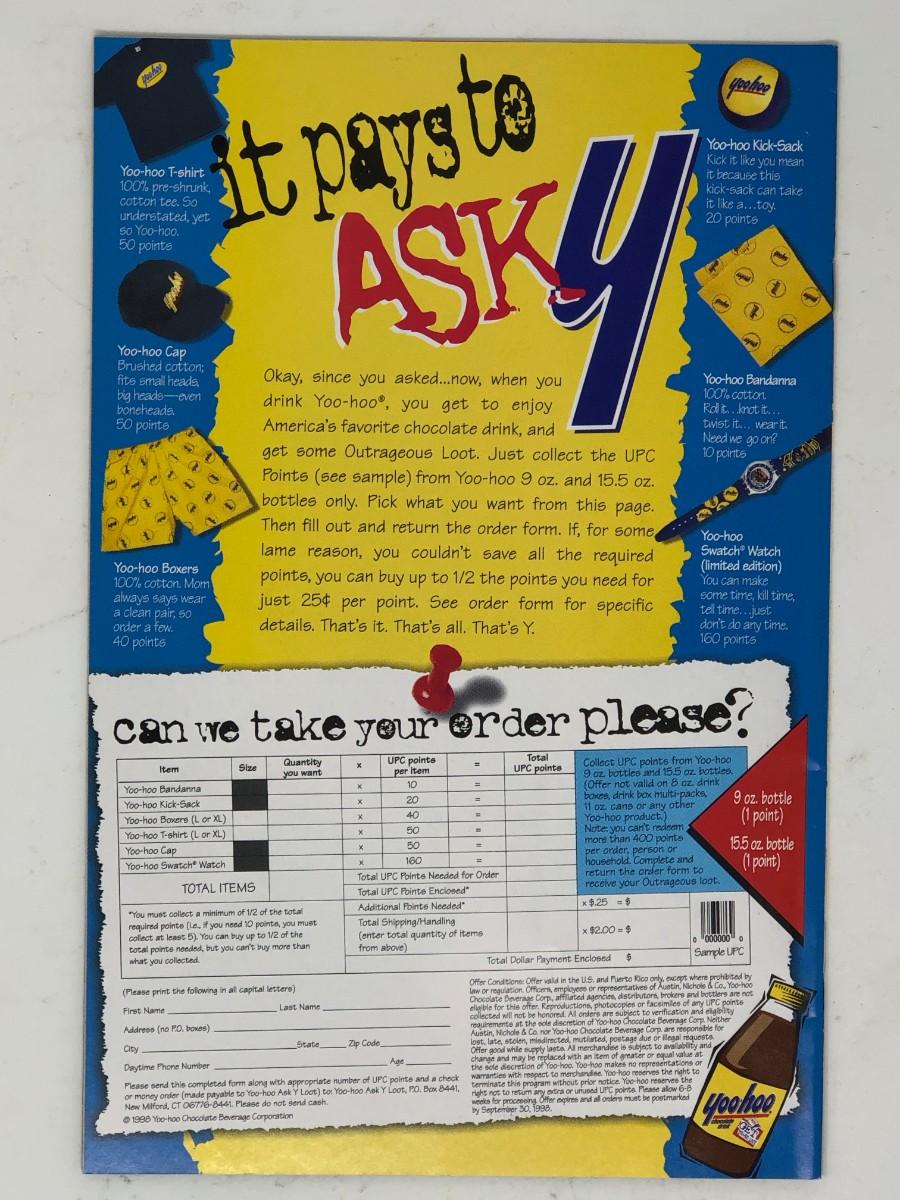 it pays to
ASK Y
yoohoo
Yoo-hoo T-shirt
100% pre-shrunk,
cotton tee. So
understated, yet
so Yoo-hoo.
50 points
yoohoo
Yoo-hoo Cap
Brushed cotton;
fits small heads,
big heads—even
boneheads.
50 points
Yoo-hoo Boxers
100% cotton. Mom
always says wear
a clean pair, so
order a few.
40 points
Okay, since you asked...now, when you
drink Yoo-hoo®, you get to enjoy
America's favorite chocolate drink, and
get some Outrageous Loot. Just collect the UPC
Points (see sample) from Yoo-hoo 9 oz. and 15.5 oz.
bottles only. Pick what you want from this page.
Then fill out and return the order form. If, for some
lame reason, you couldn't save all the required
points, you can buy up to 1/2 the points you need for
just 25¢ per point. See order form for specific
details. That's it. That's all. That's Y.
yoohoo
Yoo-hoo Kick-Sack
Kick it like you mean
it because this
kick-sack can take
it like a...toy.
20 points
Yoo-hoo Bandanna
100% cotton.
Roll it...knot it...
twist it... wear it.
Need we go on?
10 points
Yoo-hoo
Swatch® Watch
(limited edition)
You can make
some time, kill time,
tell time...just
don't do any time.
160 points
can we take your order please?
Item Size Quantity you want x UPC points per item = Total UPC points
Yoo-hoo Bandanna x 10 =
Yoo-hoo Kick-Sack x 20 =
Yoo-hoo Boxers (L or XL) x 40 =
Yoo-hoo T-shirt (L or XL) x 50 =
Yoo-hoo Cap x 50 =
Yoo-hoo Swatch® Watch x 160 =
TOTAL ITEMS
Total UPC Points Needed for Order
Total UPC Points Enclosed*
Additional Points Needed* x $.25 = $
Total Shipping/Handling
(enter total quantity of items
from above)
x $2.00 = $
Total Dollar Payment Enclosed $
*You must collect a minimum of 1/2 of the total
required points (i.e., if you need 10 points, you must
collect at least 5). You can buy up to 1/2 of the
total points needed, but you can't buy more than
what you collected.
Collect UPC points from Yoo-hoo
9 oz. bottles and 15.5 oz. bottles.
(Offer not valid on 8 oz. drink
boxes, drink box multi-packs,
11 oz. cans or any other
Yoo-hoo product.)
Note: you can't redeem
more than 400 points
per order, person or
household. Complete and
return the order form to
receive your Outrageous loot.
9 oz. bottle
(1 point)
15.5 oz. bottle
(1 point)
0 000000 0
Sample UPC
(Please print the following in all capital letters)
First Name Last Name
Address (no P.O. boxes)
City State Zip Code
Daytime Phone Number Age
Please send this completed form along with appropriate number of UPC points and a check
or money order (made payable to Yoo-hoo Ask Y Loot) to: Yoo-hoo Ask Y Loot, P.O. Box 8441,
New Milford, CT 06776-8441. Please do not send cash.
© 1998 Yoo-hoo Chocolate Beverage Corporation
Offer Conditions: Offer valid in the U.S. and Puerto Rico only, except where prohibited by
law or regulation. Officers, employees or representatives of Austin, Nichols & Co., Yoo-hoo
Chocolate Beverage Corp., affiliated agencies, distributors, brokers and bottlers are not
eligible for this offer. Reproductions, photocopies or facsimiles of any UPC points
collected will not be honored. All orders are subject to verification and eligibility
requirements at the sole discretion of Yoo-hoo Chocolate Beverage Corp. Neither
Austin, Nichols & Co. nor Yoo-hoo Chocolate Beverage Corp. are responsible for
lost, late, stolen, misdirected, mutilated, postage due or illegal requests.
Offer good while supply lasts. All merchandise is subject to availability and
change and may be replaced with an item of greater or equal value at
the sole discretion of Yoo-hoo. Yoo-hoo makes no representations or
warranties with respect to merchandise. Yoo-hoo reserves the right to
terminate this program without prior notice. Yoo-hoo reserves the
right not to return any extra or unused UPC points. Please allow 6-8
weeks for processing. Offer expires and all orders must be postmarked
by September 30, 1998.
yoohoo
chocolate
drink